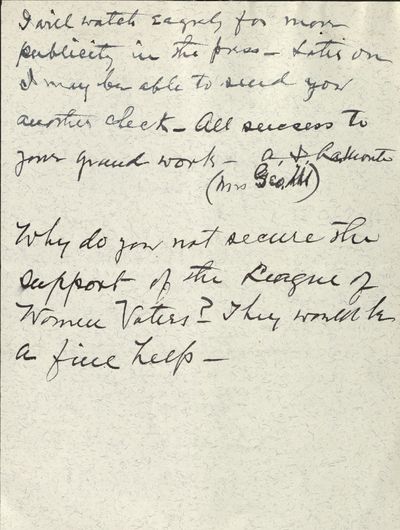 I will watch eagerly for more
publicity in the press – Later on
I may be able to send you
another check – All success to
your grand work – A. S.
(Mrs Geo. M)
Why do you not secure the
support of the League of
Women Voters? They would be
a fine help –